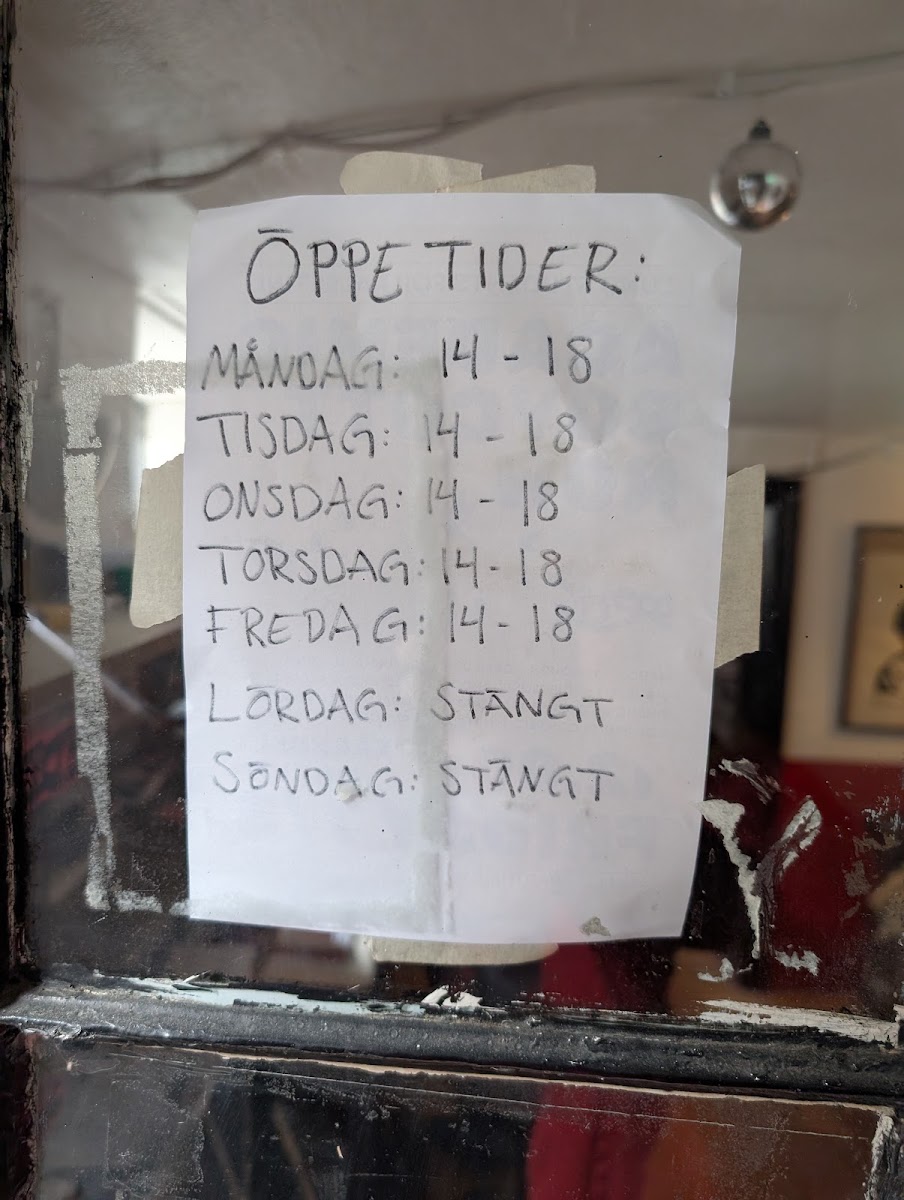 ÖPPETIDER:
MÅNDAG: 14 - 18
TISDAG: 14 - 18
ONSDAG: 14 - 18
TORSDAG: 14 - 18
FREDAG: 14 - 18
LÖRDAG: STÄNGT
SÖNDAG: STÄNGT